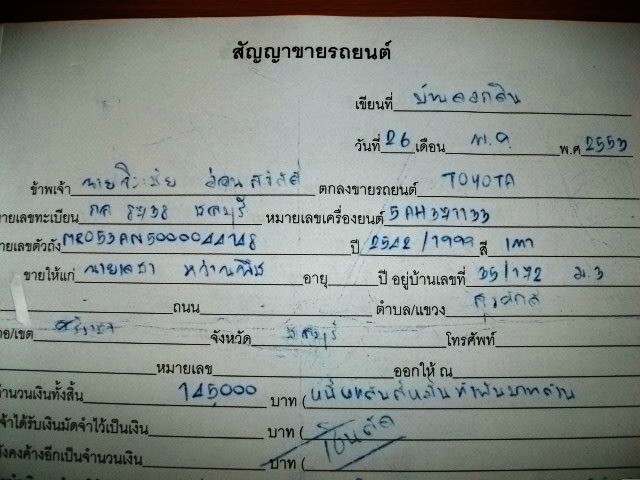 สัญญาขายรถยนต์
เขียนที่
วันที่ 26 เดือน พ.ค. พ.ศ. 2553
ข้าพเจ้า นาย ตกลงขายรถยนต์ TOYOTA
ายเลขทะเบียน ชลบุรี หมายเลขเครื่องยนต์ 5AH371133
ายเลขตัวถัง MR053AN5000044148 ปี 2542/1999 สี เทา
ขายให้แก่ นาย อายุ ปี อยู่บ้านเลขที่ 35/172 ม.3
ถนน ตำบล/แขวง สุรศักดิ์
อ/เขต ศรีราชา จังหวัด ชลบุรี โทรศัพท์
หมายเลข ออกให้ ณ
จำนวนเงินทั้งสิ้น 145000 บาท (หนึ่งแสนสี่หมื่นห้าพันบาทถ้วน
จ้าได้รับเงินมัดจำไว้เป็นเงิน บาท (
ังคงค้างอีกเป็นจำนวนเงิน บาท (เงินสด